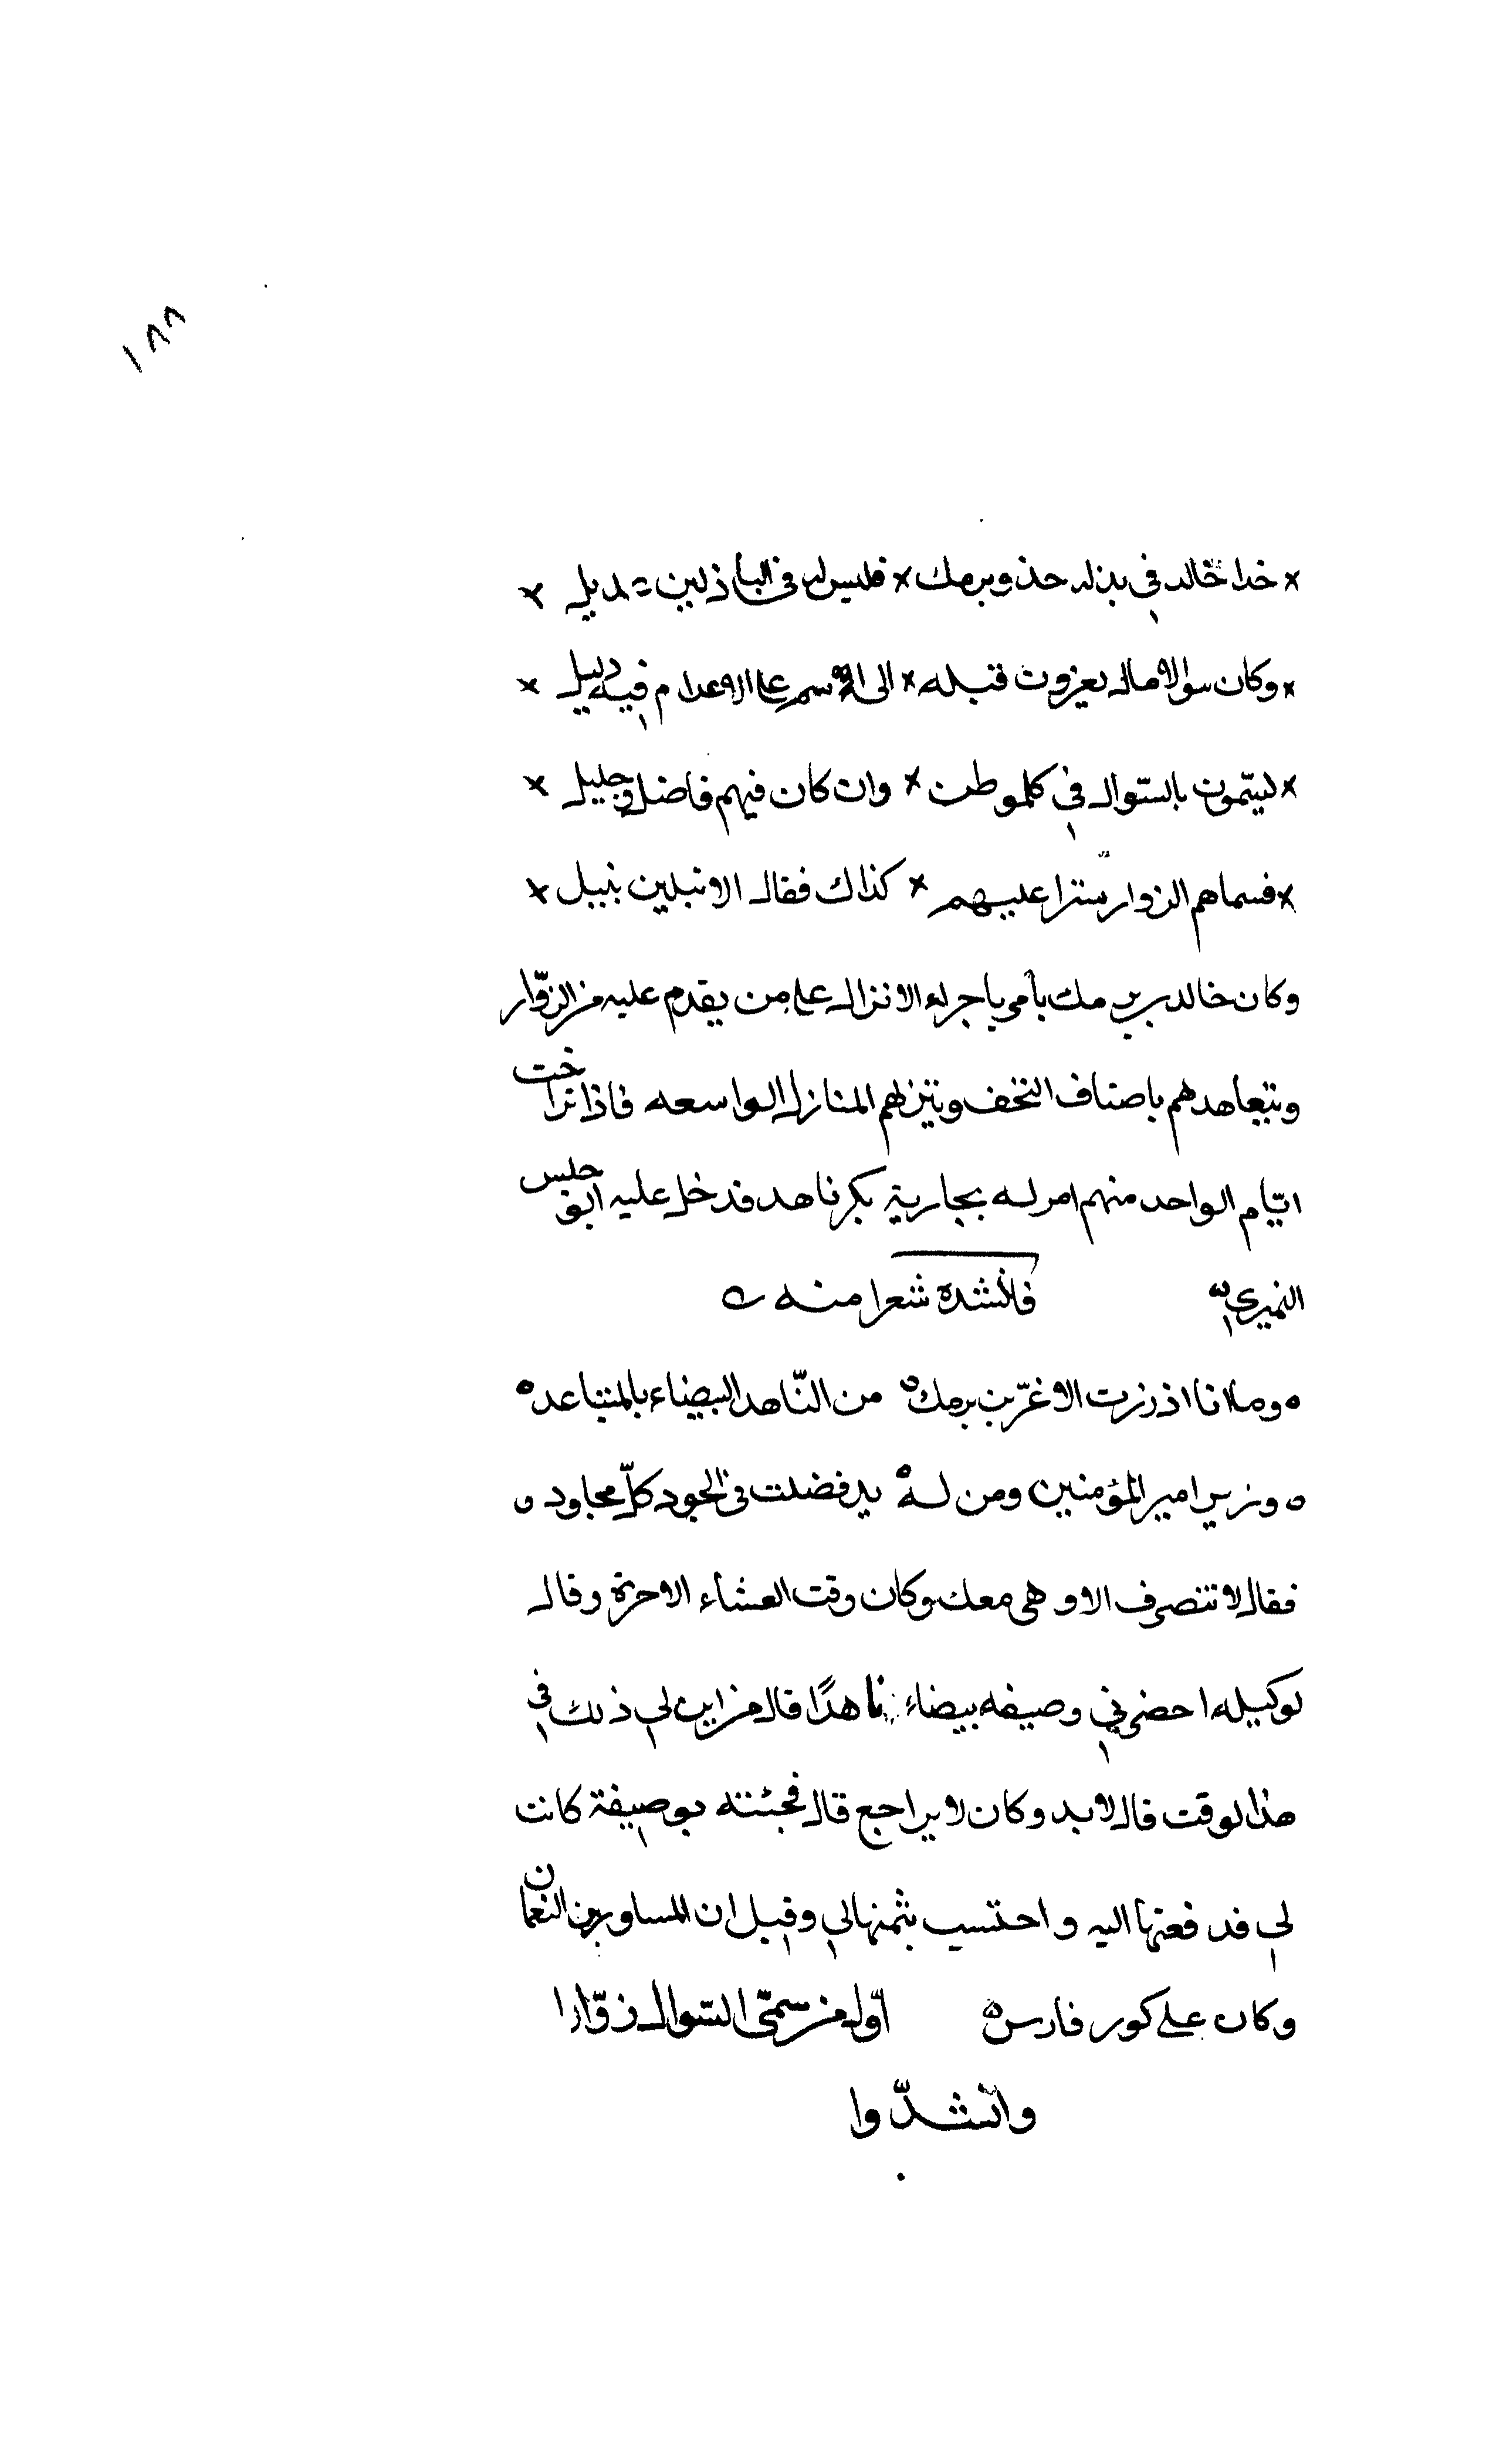 ١٨٨
× خدا خالد في بذله حذو برمك × فليس له في الباذلين عديل ×
× وكان سوال الامال يعزون قبله × الى اسم على الاعدام فيه دليل ×
× ليتمون بالسّوال في كل موطن × وان كان فيهم فاضل وجليل ×
× فسماهم الزوار سترا عليهم × كذاك فقال الانبلين نبيل ×
وكان خالد بن برمك يأمر باجراء الانزال على من يقدم عليه من الزوّار
ويتعاهدهم باصناف التحف وينزلهم المنازل الواسعه فاذا تراخت
ايّام الواحد منهم امر له بجارية بكر ناهد فدخل عليه ابو حليس
النميرى فانشده شعرا منه
ه وما انا اذ زرت الاغرّ بن برمك ه من النّاهد البيضاء بالمتباعد ه
ه وزير امير المؤمنين ومن له ه يد فضلت في الجود كلّ مجاود ه
فقال لا تنصرف الا وهى معك وكان وقت العشاء الاخرة وقال
لوكيله احضرني وصيفه بيضاء ناهدًا قال من اين لي ذلك في
هذا لوقت قال لا بد وكان لا يراجع قال فجئته بوصيفة كانت
لي فدفعتها اليه واحتسب بثمنها لي وقيل ان المساور بن النعمان
وكان على كور فارس ه اوّل من سمّى السّوال زوّارا
وانشدوا